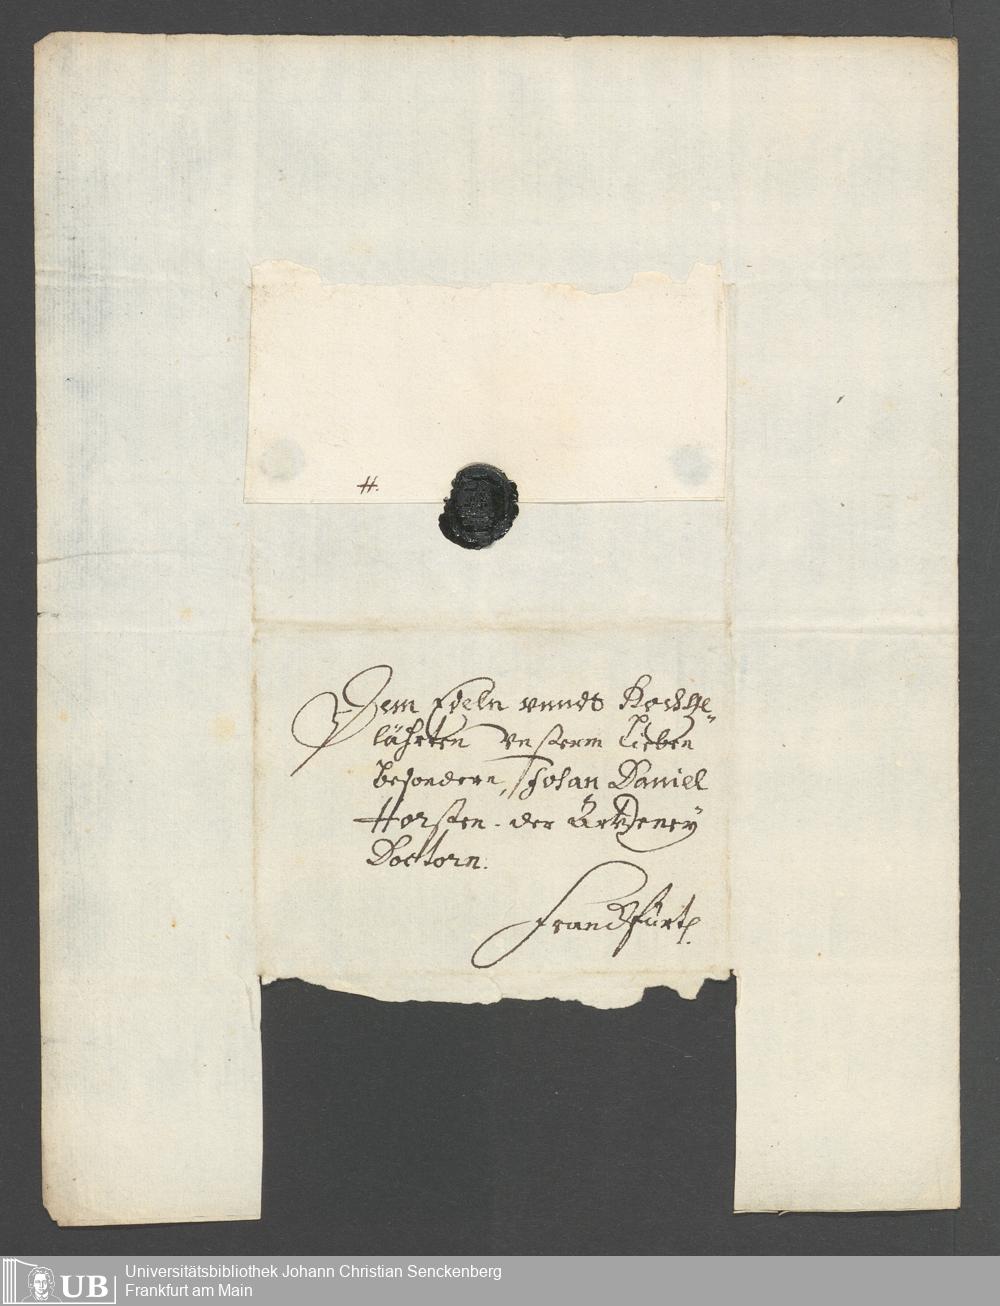 H.
Dem Edeln vnndt Hochge-
lährten vnserm Lieben
besondern, Johan Daniel
Horsten der Artzeney
Doctorn.
Franckfürt
Universitätsbibliothek Johann Christian Senckenberg
Frankfurt am Main
UB